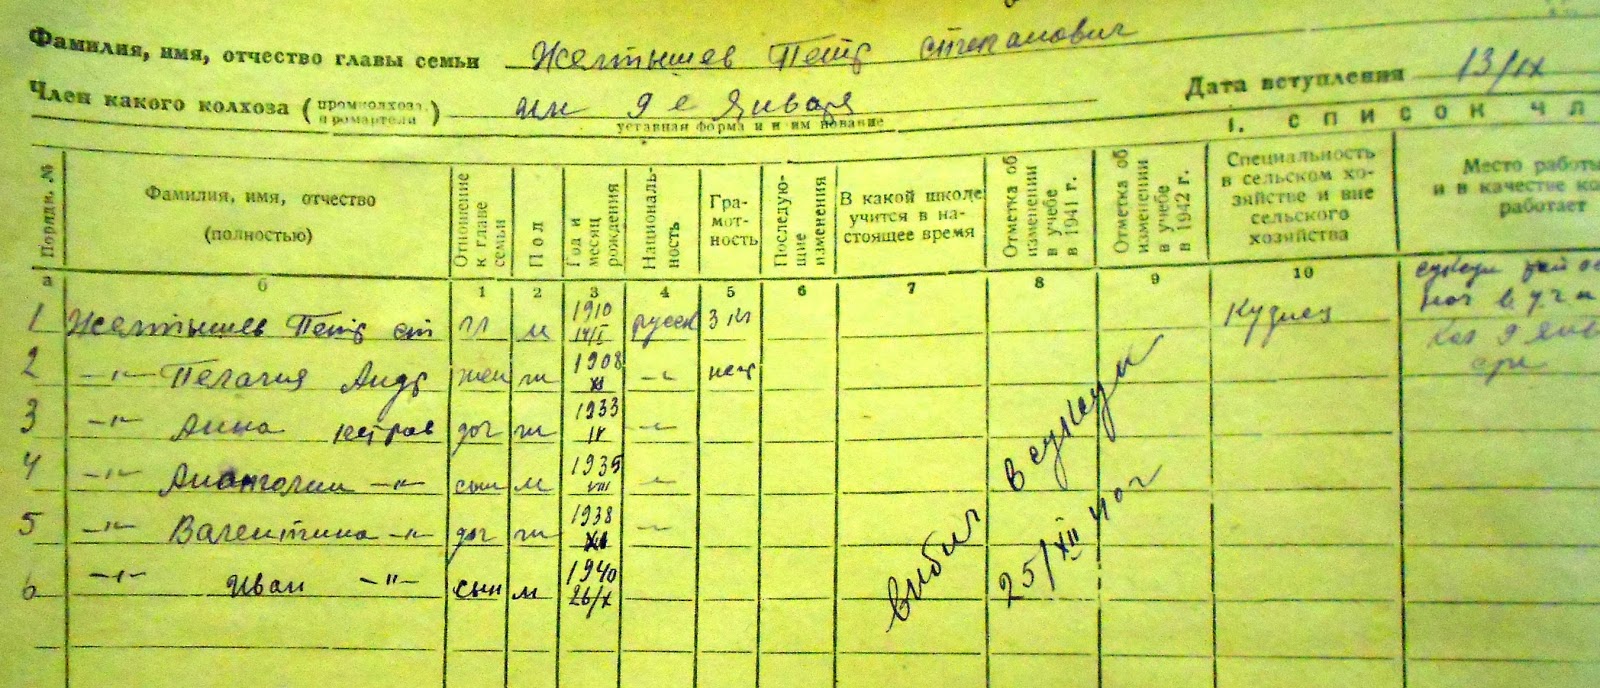 Фамилия, имя, отчество главы семьи Желтышев Петр степанович
Член какого колхоза (промколхоза, промартели) им 9 е Января
уставная форма и наименование
Дата вступления 13/IX
I. СПИСОК ЧЛ
Порядк. №
Фамилия, имя, отчество (полностью)
Отношение к главе семьи
Пол
Год и месяц рождения
Националь-ность
Гра-мот-ность
Последую-щие изменения
В какой школе учится в на-стоящее время
Отметка об изменении в учебе в 1941 г.
Отметка об изменении в учебе в 1942 г.
Специальность в сельском хо-зяйстве и вне сельского хозяйства
Место работы и в качестве ко работает
а б 1 2 3 4 5 6 7 8 9 10
1 Желтышев Петр ст гл м 1910 14/I русск 3 кл Кузнец
2 —"— Пелагия Андр жен ж 1908 XI —"— негр
3 —"— Анна петров доч ж 1933 IV —"—
4 —"— Анатолии —"— сын м 1935 VIII —"—
5 —"— Валентина —"— доч ж 1938 XII —"—
6 —"— Иван —"— сын м 1940 26/X
выбыл в
25/XII 40 г